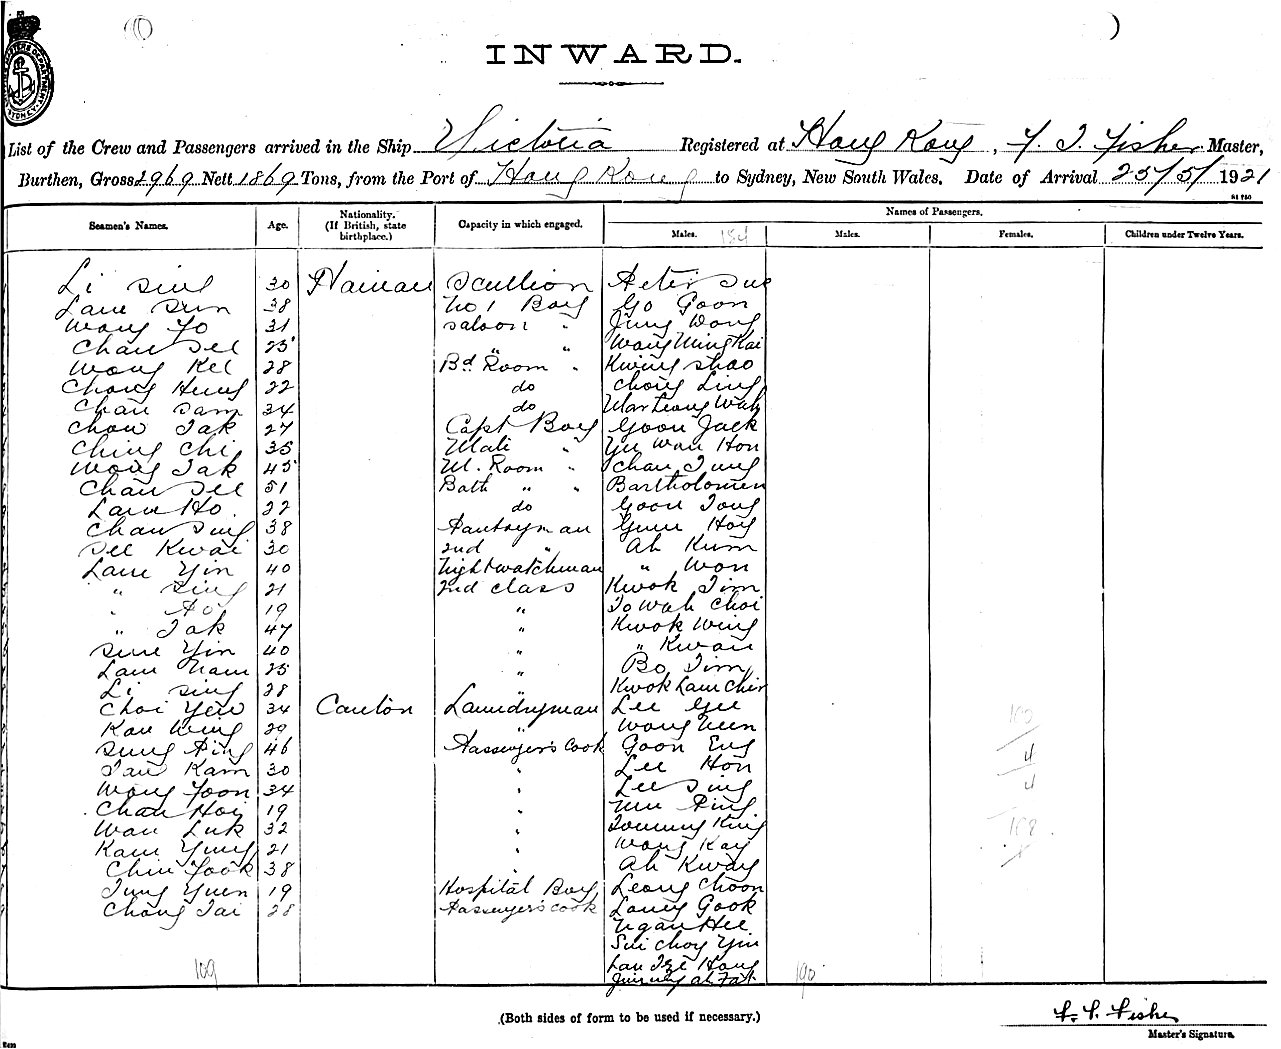 INWARD.
List of the Crew and Passengers arrived in the Ship Victoria Registered at Hong Kong, Fisher Master,
Burthen, Gross 2969 Nett 1869 Tons, from the Port of Hong Kong to Sydney, New South Wales. Date of Arrival 25/5/1921
Seamen's Names. Age. Nationality. (If British, state birthplace.) Capacity in which engaged. Names of Passengers.
Males. 184 Males. Females. Children under Twelve Years.
Li Sing 30 Hainan Scullion Peter Sue
Lam Sun 38 No 1 Boy Go Goon
Wong Yo 31 Saloon " Jung Wong
Chan See 25 " " Wong Ming Kai
Wong Kee 28 Bd. Room " Kwing Shao
Chong Hung 22 do Chong Ling
Chan Sam 34 do Mar Leong Wah
Chow Tak 27 Capt Boy Goon Jack
Ching Chi 35 " Yee Wan Hon
Wong Tak 45 M. Room " Chan Tung
Chan See 51 Bath " " Bartholomew
Lam Ho. 22 do Goon Tong
Chan Sing 38 Pantryman Hoy
See Kwai 30 2nd " Ah Kum
Lam Yin 40 Nightwatchman " Won
" Sing 21 2nd class Kwok Tim
" 19 " To Wah Choi
" Tak 47 " Kwok Wing
Yin 40 " " Kwan
Lam Nam 25 " Bo Tim
Li Sing 28 " Kwok Lam Chin
Choi Yew 34 Canton Laundryman Lee Gee
Kan Wing 29 " Wong
Sung Ping 46 Passenger's Cook Goon Eng
Tan Kam 30 " Lee Hon
Wong Foon 34 " Lee Sing
Chan Hoy 19 " Ping
Wan Luk 32 " Tommy King
Kam Yung 21 " Wong Kay
Chin Fook 38 " Ah Kway
Tung Yuen 19 Hospital Boy Leong Choon
Chong Tai 28 Passenger's cook Gook
Ngan Hee
Sui Choy Yin
Lau Hong
Jimmy Ah Fat
109 190
(Both sides of form to be used if necessary.)
Fisher
Master's Signature.